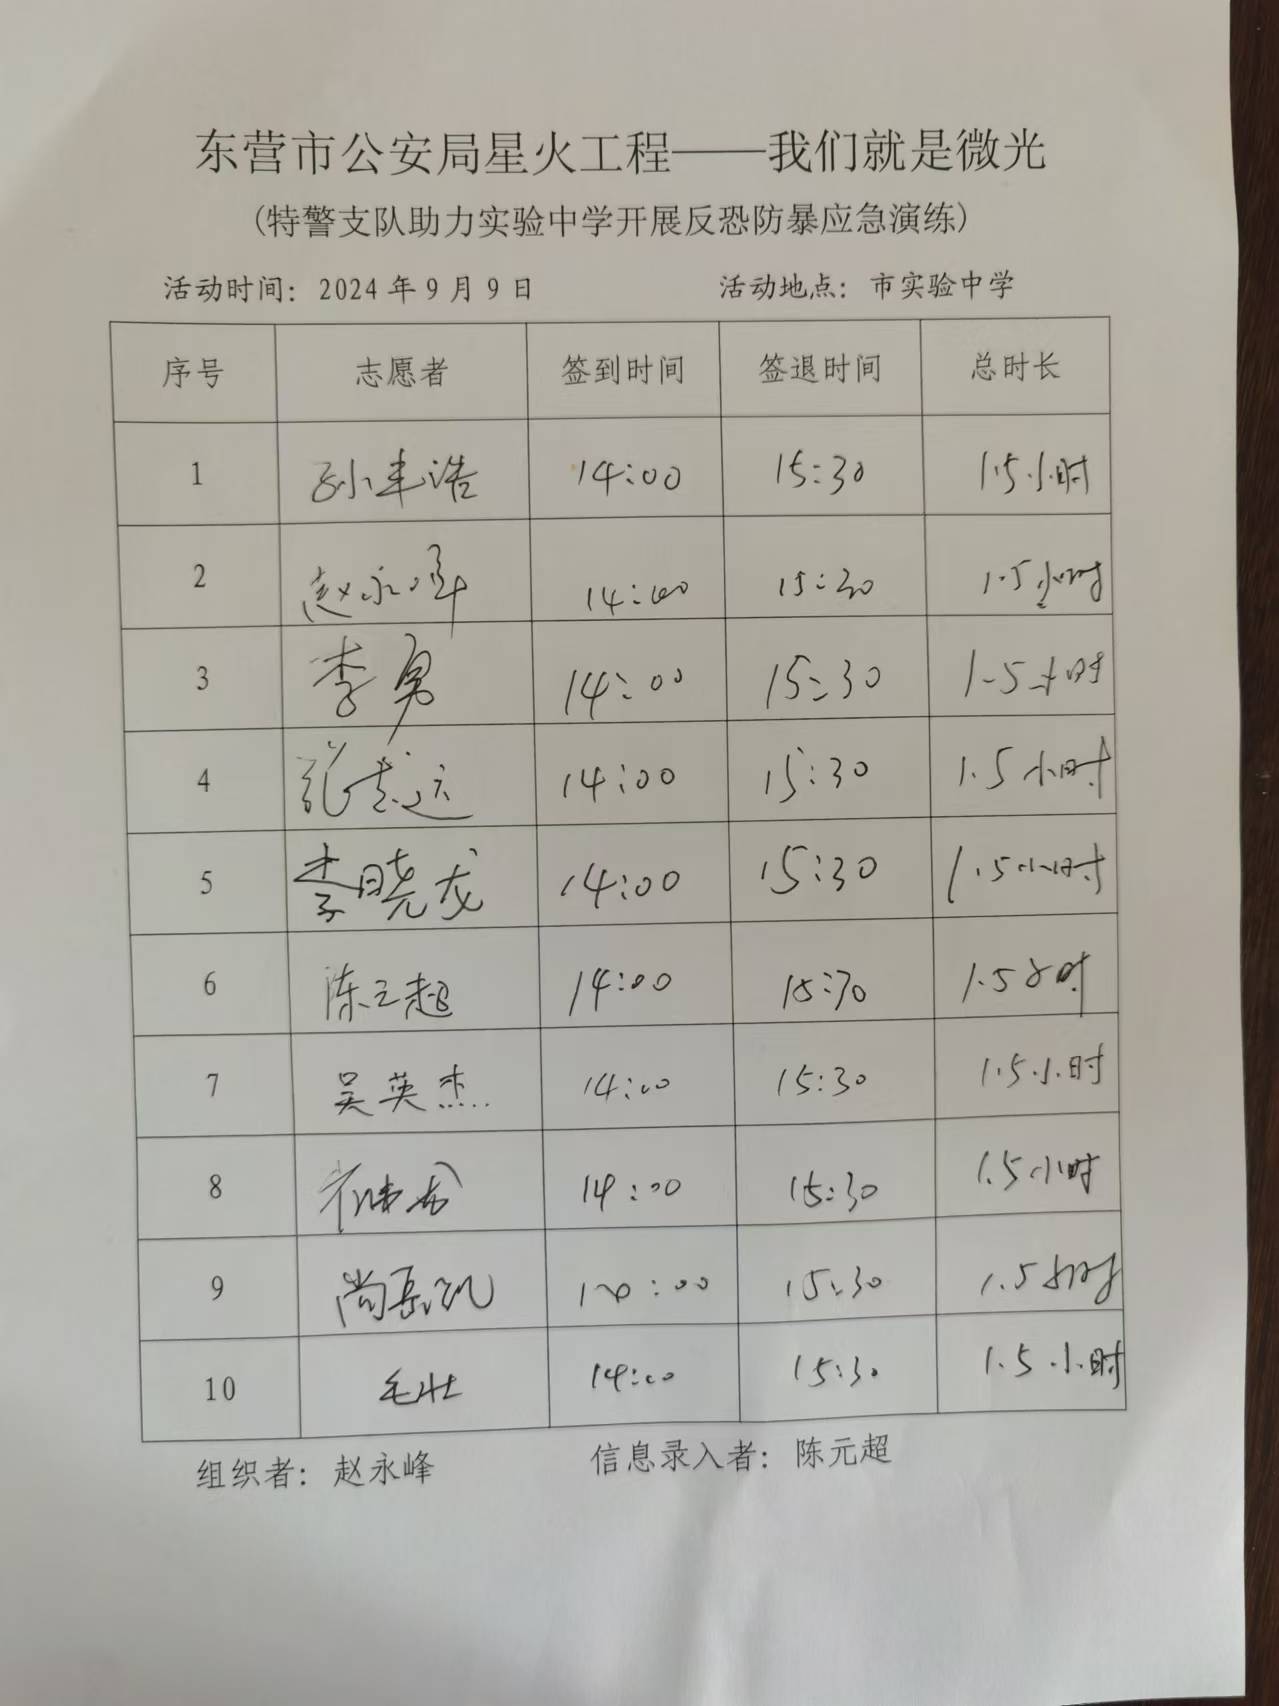 东营市公安局星火工程——我们就是微光
(特警支队助力实验中学开展反恐防暴应急演练)
活动时间：2024年9月9日 活动地点：市实验中学
序号 志愿者 签到时间 签退时间 总时长
1 孙丰浩 14:00 15:30 1.5小时
2 赵永峰 14:00 15:30 1.5小时
3 李勇 14:00 15:30 1.5小时
4 张志远 14:00 15:30 1.5小时
5 李晓龙 14:00 15:30 1.5小时
6 陈元超 14:00 15:30 1.5小时
7 吴英杰 14:00 15:30 1.5小时
8 14:00 15:30 1.5小时
9 尚磊凯 14:00 15:30 1.5小时
10 毛壮 14:00 15:30 1.5小时
组织者：赵永峰 信息录入者：陈元超